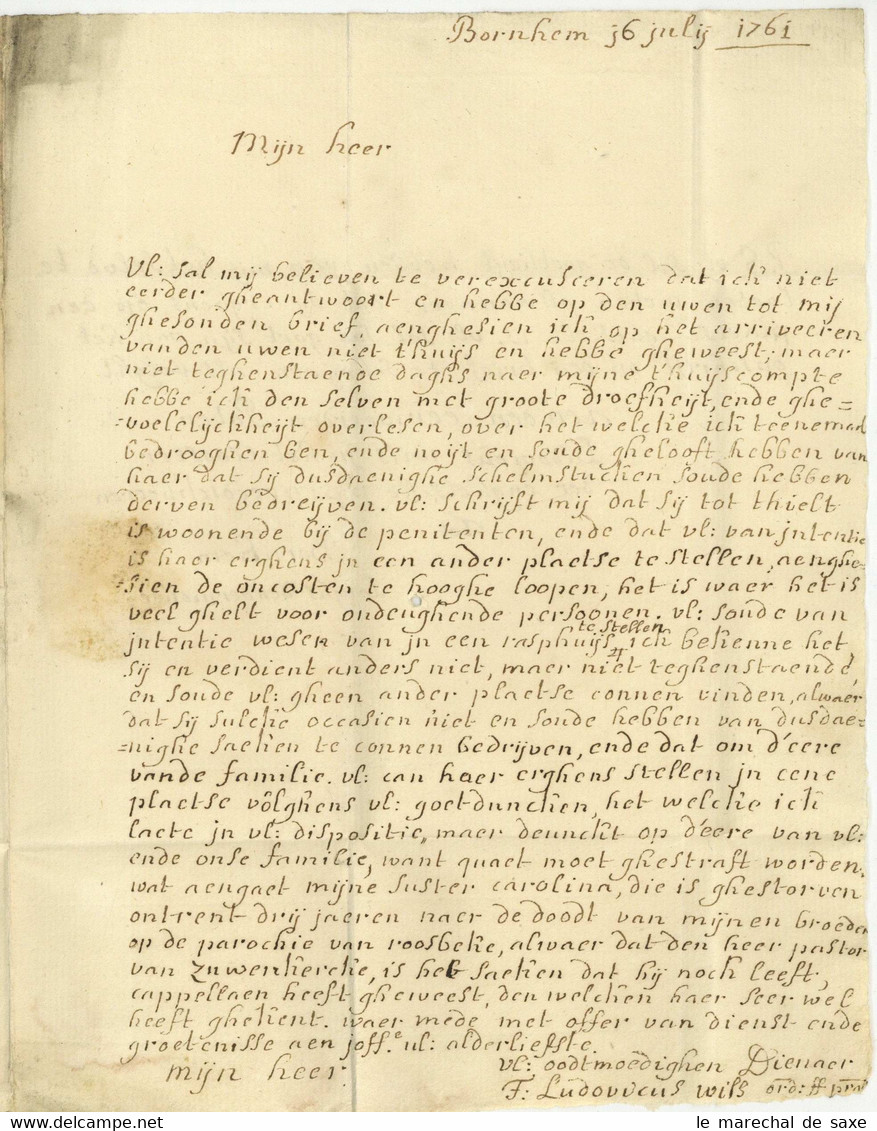 Bornhem j6 julij 1761
Mijn heer
Vl: sal mij believen te verexcusceren dat ick niet
eerder gheantwoort en hebbe op den uwen tot mij
ghesonden brief, aenghesien ick op het arriveeren
vanden uwen niet t'huijs en hebbe gheweest, maer
niet teghenstaende daghs naer mijne t'huijscompte
hebbe ick den selven met groote droefheijt, ende ghe=
=voelelijckheijt overlesen, over het welcke ick teenemael
bedrooghen ben, ende noijt en soude ghelooft hebben van
haer dat sij dusdaenighe schelmstucken soude hebben
derven bedreijven. vl: schrijft mij dat sij tot thielt
is woonende bij de penitenten, ende dat vl: van jntentie
is haer erghens jn een ander plaetse te stellen, aenghe=
=sien de oncosten te hooghe loopen, het is waer het is
veel ghelt voor ondeughende persoonen. vl: soude van
jntentie wesen van jn een rasphuijs te stellen, ick bekenne het
sij en verdient anders niet, maer niet teghenstaende
en soude vl: gheen ander plaetse connen vinden, alwaer
dat sij sulcke occasien niet en soude hebben van dusdae=
=nighe saeken te connen bedrijven, ende dat om d'eere
vande familie. vl: can haer erghens stellen jn eene
plaetse volghens vl: goetduncken, het welcke ick
laete jn vl: dispositie, maer deunckt op d'eere van vl:
ende onse familie, want quaet moet ghestraft worden.
wat aengaet mijne suster carolina, die is ghestorven
ontrent drij jaeren naer de doodt van mijnen broeder
op de parochie van roosbeke, alwaer dat den heer pastor
van zuwenkercke, is het saeken dat hij noch leeft,
cappellaen heeft gheweest, den welcken haer seer wel
heeft ghekent. waer mede met offer van dienst ende
groetenisse aen joff.e vl: alderliefste.
mijn heer.
vl: oodtmoedighen Dienaer
F: Ludovvcus Wils ord: ff præd
le marechal de saxe